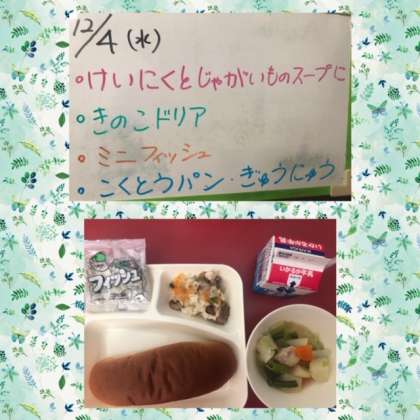 12/4(水)
・けいにくとじゃがいものスープに
・きのこドリア
・ミニフィッシュ
・こくとうパン・ぎゅうにゅう
フィッシュ
いかるが牛乳